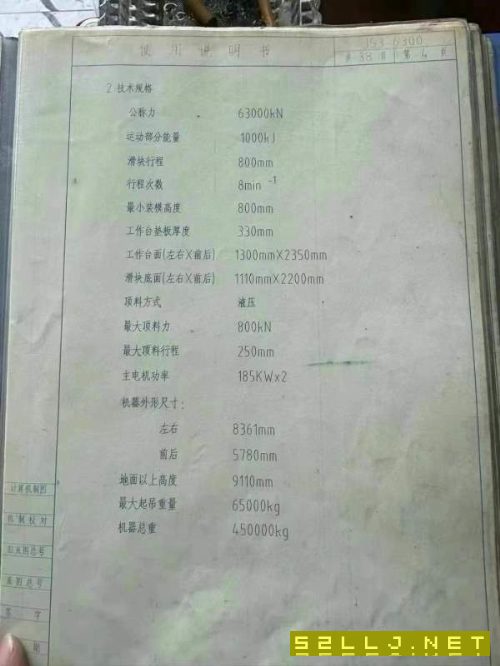 使用说明书
J53-6300
共 38 页 第 4 页
2.技术规格
公称力 63000kN
运动部分能量 1000kJ
滑块行程 800mm
行程次数 8min⁻¹
最小装模高度 800mm
工作台垫板厚度 330mm
工作台面(左右X前后) 1300mmX2350mm
滑块底面(左右X前后) 1110mmX2200mm
顶料方式 液压
最大顶料力 800kN
最大顶料行程 250mm
主电机功率 185KWx2
机器外形尺寸:
左右 8361mm
前后 5780mm
地面以上高度 9110mm
最大起吊重量 65000kg
机器总重 450000kg
计算机制图
机制校对
旧底图总号
底图总号
签 字
期
52LLJ.NET